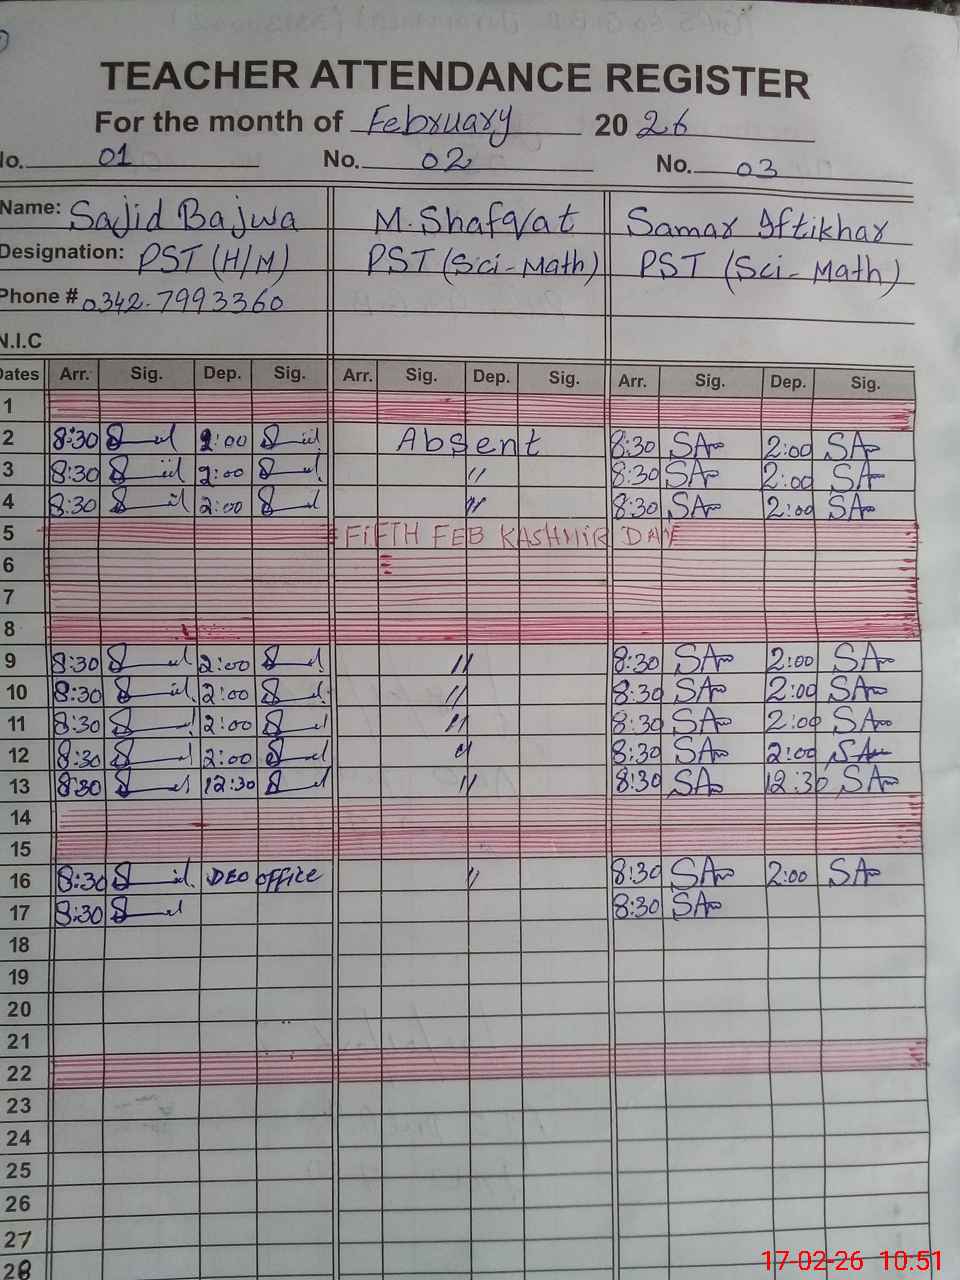 TEACHER ATTENDANCE REGISTER
For the month of February 2026
No. 01 No. 02 No. 03
Name: Sajid Bajwa M. Shafqat Samar Iftikhar
Designation: PST (H/M) PST (Sci-Math) PST (Sci-Math)
Phone # 0342-7993360
N.I.C
Dates Arr. Sig. Dep. Sig. Arr. Sig. Dep. Sig. Arr. Sig. Dep. Sig.
1
2 8:30 2:00 Absent 8:30 SA 2:00 SA
3 8:30 2:00 " 8:30 SA 2:00 SA
4 8:30 2:00 " 8:30 SA 2:00 SA
5 FIFTH FEB KASHMIR DAY
6
7
8
9 8:30 2:00 " 8:30 SA 2:00 SA
10 8:30 2:00 " 8:30 SA 2:00 SA
11 8:30 2:00 " 8:30 SA 2:00 SA
12 8:30 2:00 " 8:30 SA 2:00 SA
13 8:30 12:30 " 8:30 SA 12:30 SA
14
15
16 8:30 DEO office " 8:30 SA 2:00 SA
17 8:30 8:30 SA
18
19
20
21
22
23
24
25
26
27
28
17-02-26 10:51